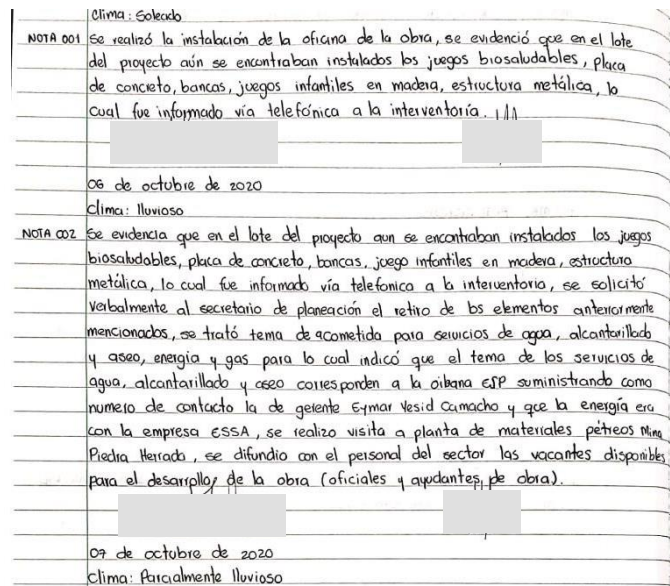 Clima: Soleado
NOTA 001 Se realizó la instalación de la oficina de la obra, se evidenció que en el lote
del proyecto aún se encontraban instalados los juegos biosaludables, placa
de concreto, bancas, juegos infantiles en madera, estructura metálica, lo
cual fue informado vía telefónica a la interventoría.
06 de octubre de 2020
Clima: lluvioso
NOTA 002 Se evidencia que en el lote del proyecto aun se encontraban instalados los juegos
biosaludables, placa de concreto, bancas, juego infantiles en madera, estructura
metálica, lo cual fue informado vía telefonica a la interventoria, se solicitó
verbalmente al secretario de planeación el retiro de los elementos anteriormente
mencionados, se trató tema de acometida para servicios de agua, alcantarillado
y aseo, energía y gas para lo cual indicó que el tema de los servicios de
agua, alcantarillado y aseo corresponden a la oibana ESP suministrando como
numero de contacto la de gerente Eymar Yesid Camacho y que la energía era
con la empresa ESSA, se realizo visita a planta de materiales pétreos Mina
Piedra Herrada, se difundio con el personal del sector las vacantes disponibles
para el desarrollo de la obra (oficiales y ayudantes de obra).
07 de octubre de 2020
Clima: Parcialmente lluvioso